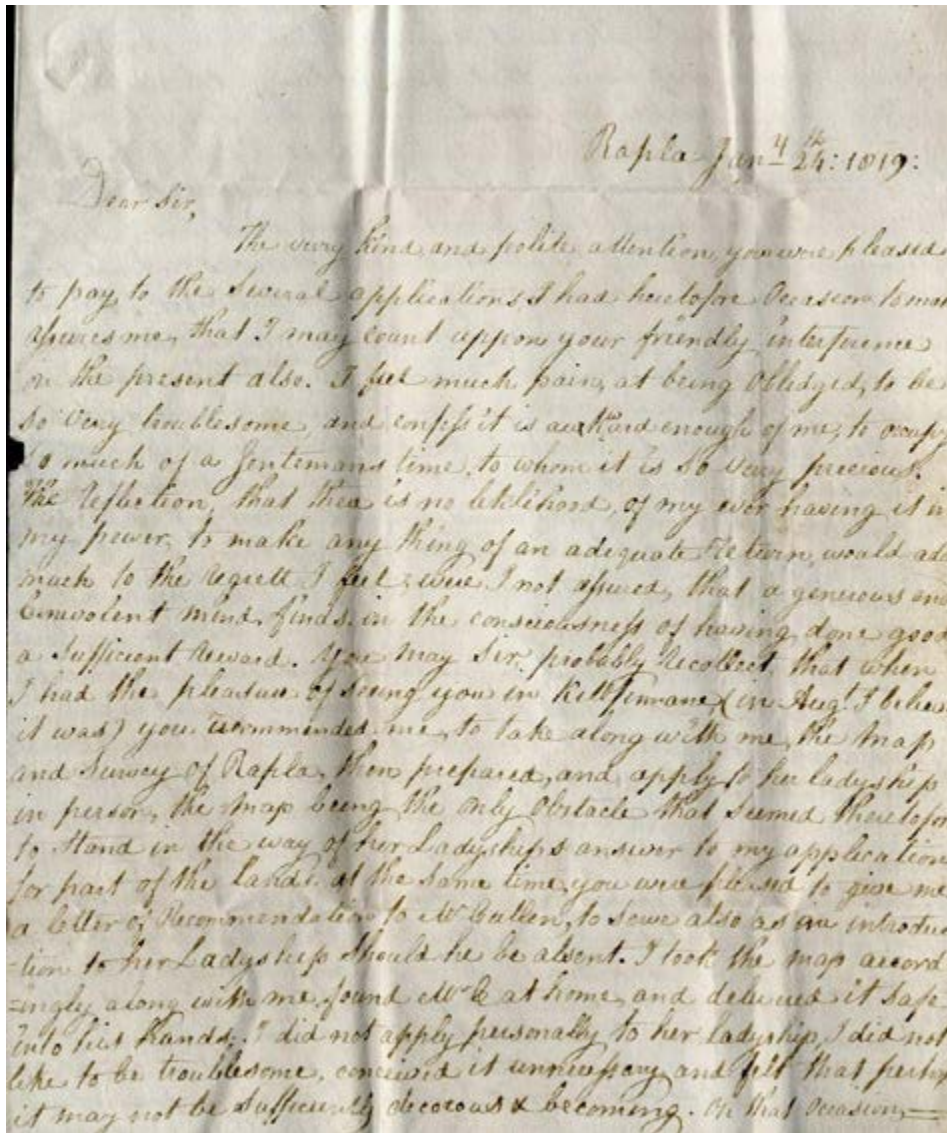 Rapla Jany 24th: 1819:
Dear Sir,
The very kind and polite attention, you were pleased
to pay, to the Several applications I had heretofore Occasion to mak
assures me, that I may count uppon your friendly interference
on the present also. I feel much pain, at being Obledged, to be
so very troublesome, and confess it is awkward enough of me, to occupy
so much of a Gentemans time, to whom it is so very precious.
The reflection, that there is no likelihood, of my ever having it in
my power, to make any thing of an adequate return, would ad
much to the regrett I feel, were I not assured, that a generious and
benevolent mind, finds, in the consciousness of having done good
a sufficient reward. You may Sir, probably recollect, that when
I had the pleasure of seeing you in (in Augt I belie
it was) you recommended me, to take along with me, the map
and Survey of Rapla, then prepared, and apply to her ladyship
in person, the map being the only Obstacle that seemed theretofor
to Stand in the way of her Ladyships answer to my application
for part of the lands, at the same time, you were pleased to give me
a letter of Recommendation to Mr Cullen, to serve also as an introduc
-tion to her Ladyship should he be absent. I took the map accord
=ingly along with me, found Mr C at home, and delivered it safe
into his hands. I did not apply personally to her ladyship, I did not
like to be troublesome, conceived it unnecessary, and felt that perhap
it may not be sufficiently decorous & becoming. On that Occasion,=